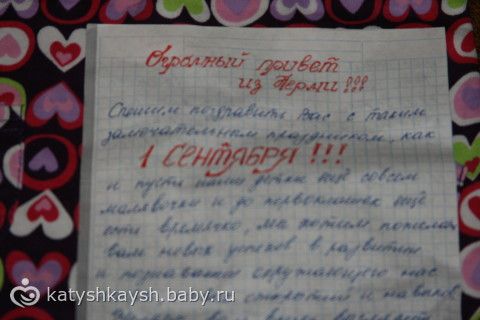 Огромный привет
из Перми!!!
Спешим поздравить Вас с таким
замечательным праздником, как
1 СЕНТЯБРЯ!!!
и пусть наши детки ещё совсем
малявочки и до первоклашек ещё
есть времечко, мы хотим пожелать
вам новых успехов в развитии
и познавании окружающего нас
открытий и навыков
katyshkaysh.baby.ru